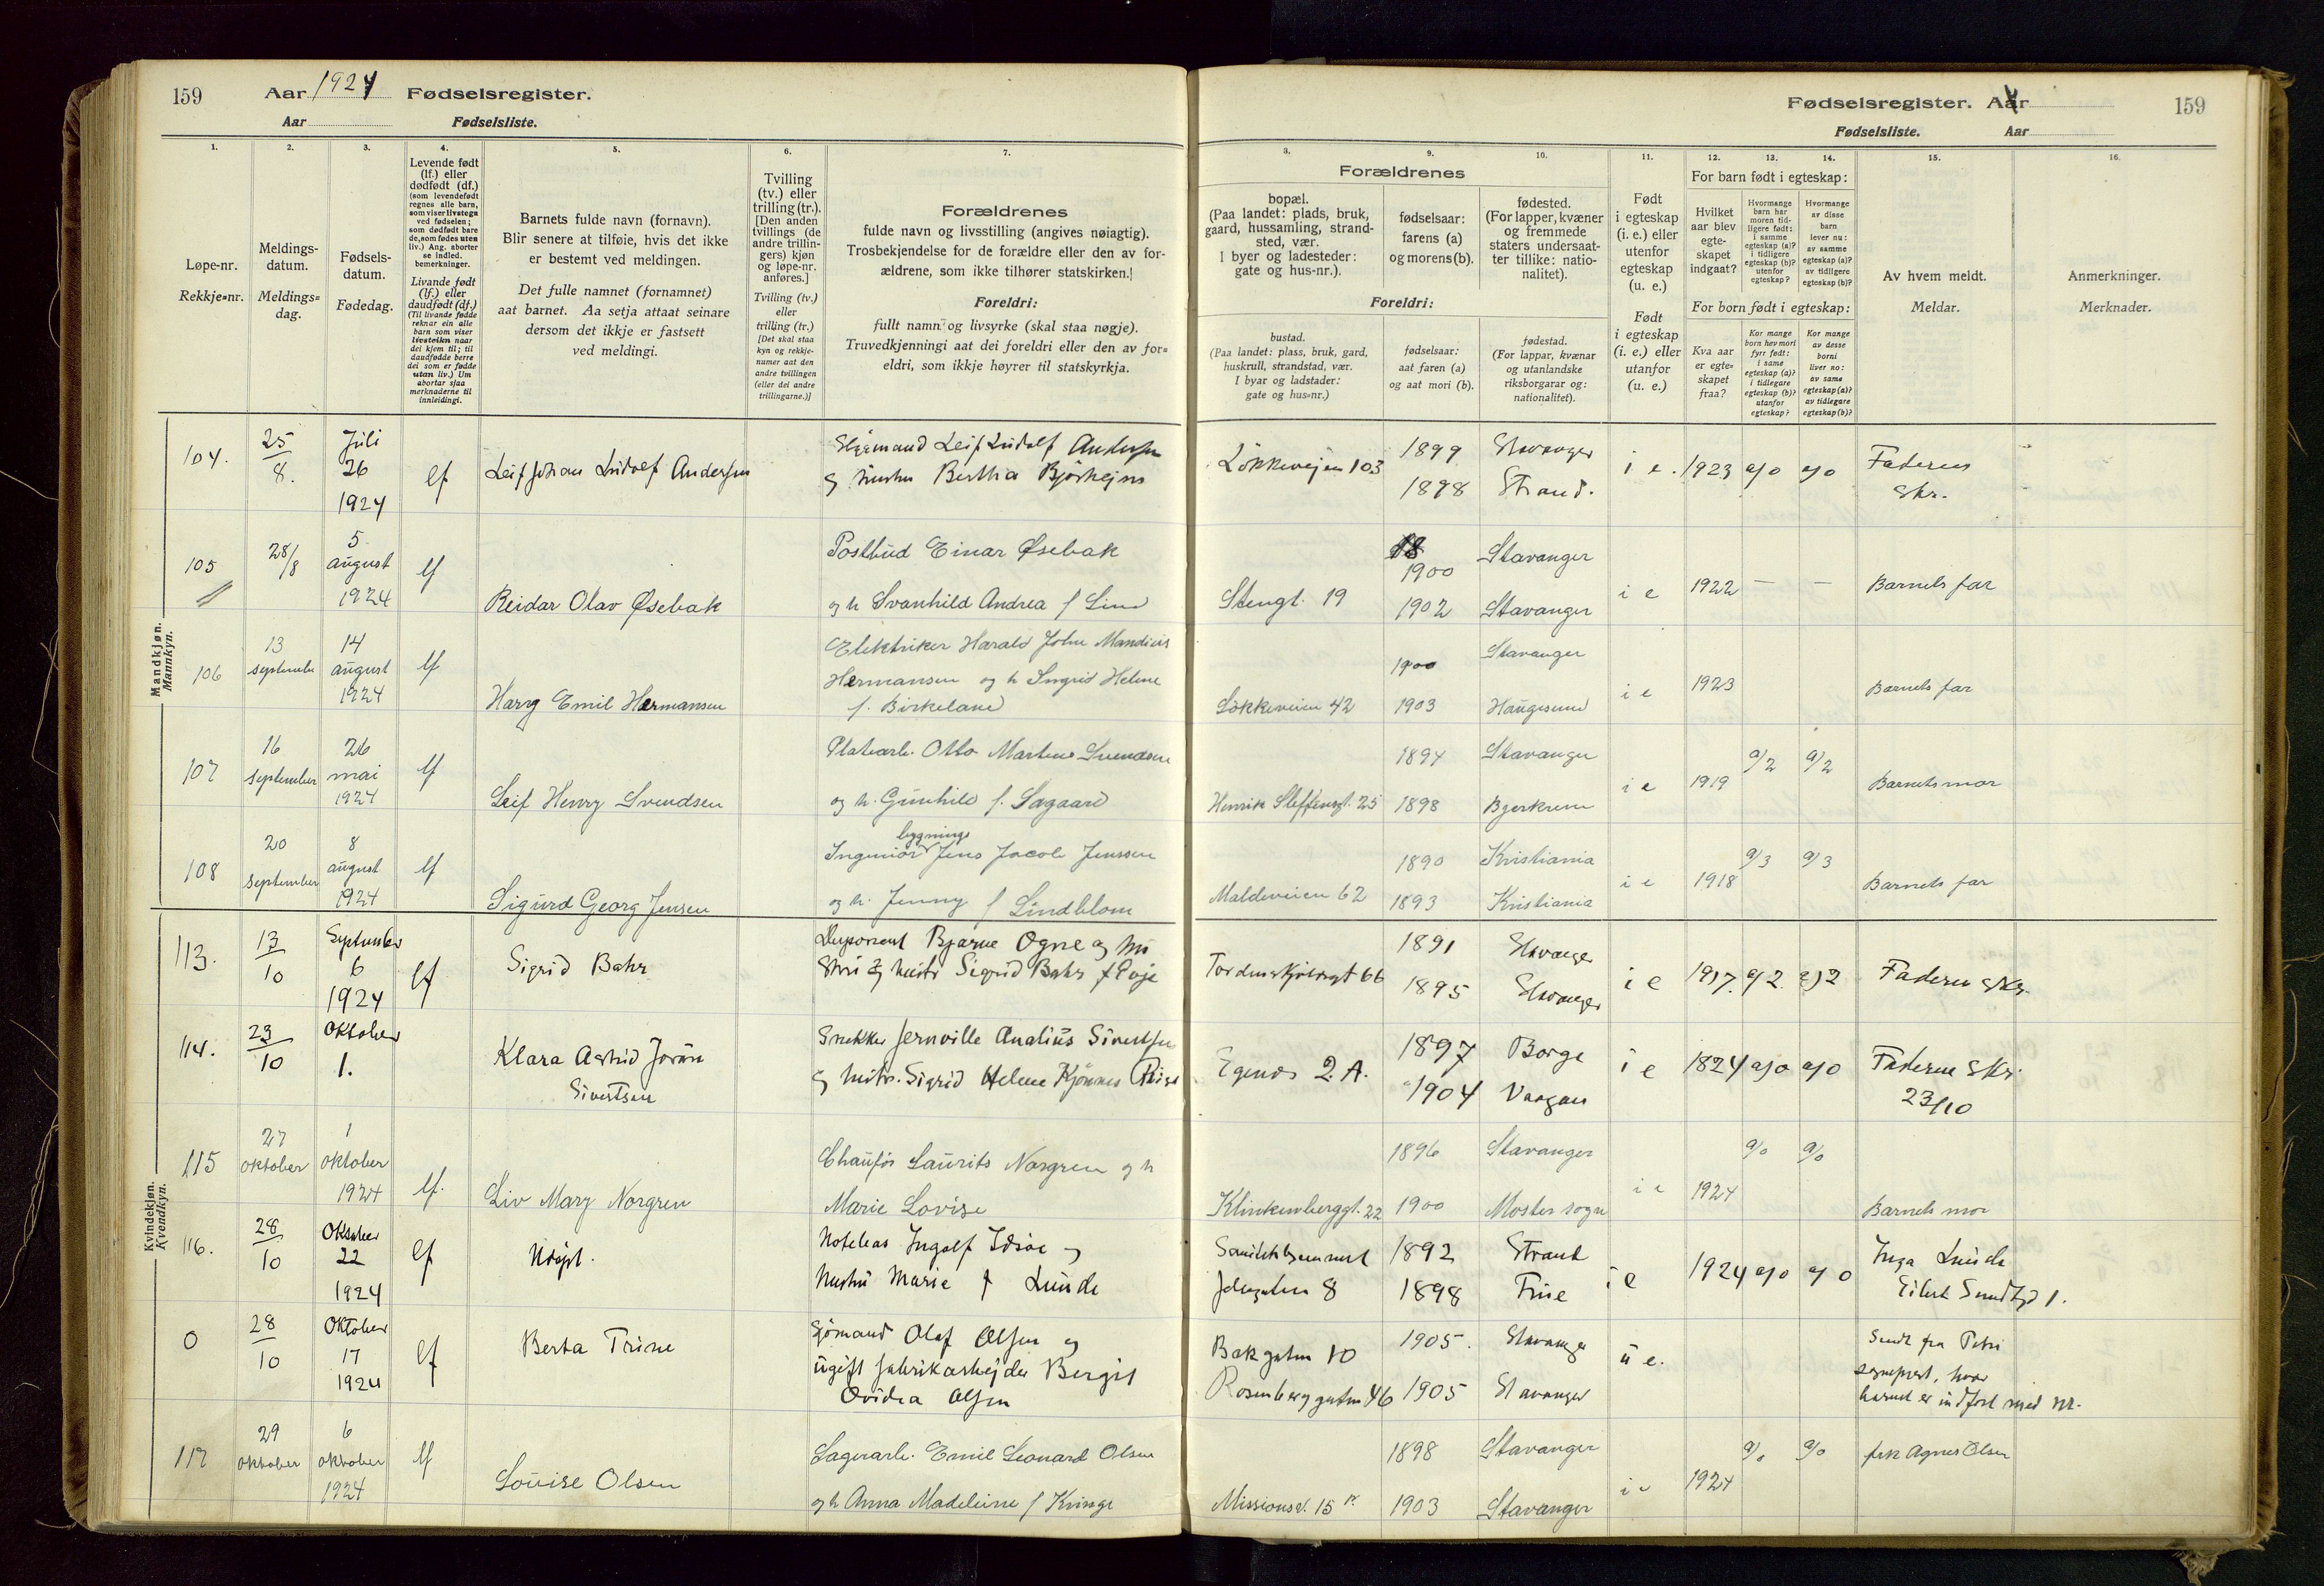 159
Aar 1924 Fødselsregister.
Aar Fødselsliste.
Fødselsregister. Aar
Fødselsliste. Aar
159
1.
Løpe-nr.
Rekkje=nr.
2.
Meldings-
datum.
Meldings=
dag.
3.
Fødsels-
datum.
Fødedag.
4.
Levende født
(lf.) eller
dødfødt (df.)
(som levendefødt
regnes alle barn,
som viser livstegn
ved fødselen;
som dødfødt bare
de, som fødes uten
liv.) Ang. aborter
se indled.
bemerkninger.
Livande født
(lf.) eller
daudfødt (df.)
(Til livande fødde
reknar ein alle
barn som viser
livsteikn naar
dei kjem til; til
daudfødde berre
dei som er fødde
utan liv.) Um
abortar sjaa
merknaderne til
innleidingi.
5.
Barnets fulde navn (fornavn).
Blir senere at tilføie, hvis det ikke
er bestemt ved meldingen.
Det fulle namnet (fornamnet)
aat barnet. Aa setja attaat seinare
dersom det ikkje er fastsett
ved meldingi.
6.
Tvilling
(tv.) eller
trilling (tr.).
[Den anden
tvillings (de
andre trillin-
gers) kjøn
og løpe-nr.
anføres.]
Tvilling (tv.)
eller
trilling (tr.)
[Det skal staa
kyn og rekkje-
numer aat den
andre tvillingen
(eller dei andre
trillingarne.)]
7.
Forældrenes
fulde navn og livsstilling (angives nøiagtig).
Trosbekjendelse for de forældre eller den av for-
ældrene, som ikke tilhører statskirken.
Foreldri:
fullt namn og livsyrke (skal staa nøgje).
Truvedkjenningi aat dei foreldri eller den av for=
eldri, som ikkje høyrer til statskyrkja.
Forældrenes
8.
bopæl.
(Paa landet: plads, bruk,
gaard, hussamling, strand-
sted, vær.
I byer og ladesteder:
gate og hus-nr.).
9.
fødselsaar:
farens (a)
og morens (b).
10.
fødested.
(For lapper, kvæner
og fremmede
staters undersaat-
ter tillike: natio-
nalitet).
Foreldri:
bustad.
(Paa landet: plass, bruk, gard,
huskrull, strandstad, vær.
I byar og ladstader:
gate og hus=nr.)
fødselsaar:
aat faren (a)
og aat mori (b).
fødestad.
(For lappar, kvænar
og utanlandske
riksborgarar og:
nationalitet).
11.
Født
i egteskap
(i. e.) eller
utenfor
egteskap
(u. e.)
Født
i egteskap
(i. e.) eller
utanfor
(u. e.)
For barn født i egteskap:
12.
Hvilket
aar blev
egte-
skapet
indgaat?
13.
Hvormange
barn har
moren tid-
ligere født:
i samme
egteskap (a)?
i tidligere
egteskap (b)?
utenfor
egteskap?
14.
Hvormange
av disse
barn
lever nu:
av samme
egteskap (a)?
av tidligere
egteskap (b)?
For born født i egteskap:
Kva aar
er egte=
skapet
fraa?
Kor mange
born hev mori
fyrr født:
i same
egteskap (a)?
i tidlegare
egteskap (b)?
utanfor
egteskap?
Kor mange
av desse
borni
liver no:
av same
egteskap (a)?
av tidlegare
egteskap (b)?
15.
Av hvem meldt.
Meldar.
16.
Anmerkninger.
Merknader.
Mandkjøn.
Mannkyn.
104. 25/8. Juli 26 1924 lf Leif Johan Ludolf Andersen
Leif Ludolf Andersen
og hustru Bertha
Løkkevejen 103 1899 Stavanger
1898 Strand. i e. 1923 a/0 a/0 Faderen
Skr.
105 28/8 5 august 1924 lf Reidar Olav Øsebak
Postbud Einar Øsebak
og h Svanhild Andrea f Lind
Stengt. 19 1900 Stavanger
1902 Stavanger i e 1922 — — Barnets far
106 13 september 14 august 1924 lf Harry Emil Hermansen
Elektriker Harald John Mandius
Hermansen og h Ingrid Helene
f. Birkeland
Løkkeveien 42 1900 Stavanger
1903 Haugesund i e 1923 Barnets far
107 16 september 26 mai 1924 lf Leif Henry Svendsen
Platearb. Otto Martens Svendsen
og h. Gunhild f. Søgaard
Henrik Steffensgt. 25 1894 Stavanger
1898 Bjerkrem i e 1919 a/2 a/2 Barnets mor
108 20 september 8 august 1924 lf Sigurd Georg Jensen
bygnings
Ingeniør Jens Jacob Jenssen
og h. Jenny f Lindblom
Maldeveien 62 1890 Kristiania
1893 Kristiania i e 1918 a/3 a/3 Barnets far
Kvindekjøn.
Kvendkyn.
113. 13/10 September 6 1924 lf Sigrid Bahr
Disponent Bjarne Ogne
Sigrid Bahr f Eoje
Tordenskjoldsgt 66 1891 Stavanger
1895 Stavanger i e 1917. a/2. a/2 Faderen Skr.
114. 23/10 Oktober 1. Klara Astrid Jorun
Sivertsen
Snekker Jernville Analius Sivertsen
og hustr. Sigrid Helene
Egenes 2. A. 1897 Borge
1904 Vaagan i e 1824 a/0 a/0 Faderen Skr.
23/10
115 27 oktober 1 oktober 1924 lf. Liv Mary Norgren
Chaufør Laurits Norgren og h
Marie Lovise
Klinkenberggt. 22 1896 Stavanger
1900 Moster sogn i e 1924 a/0 a/0 Barnets mor
116. 28/10 Oktober 22 1924 lf Udøpt.
Ingolf Idsøe og
hustru Marie f Lunde
8 1892 Strand
1898 i e 1924 a/0 a/0 Inga Lunde
Eilert Sundtsgt 1.
0 28/10 Oktober 17 1924 lf Berta Trine
Sjømand Olaf Olsen og
ugift fabrikarbejder Bergit
Ovidia Olsen
Bakgaten 10 1905. Stavanger
Rosenberggaten 46 1905 Stavanger u e. Sendt fra Petri
sogneprest, hvor
barnet er indført med nr.
117 29 oktober 6 oktober 1924 lf Louise Olsen
Lagerarb. Emil Leonard Olsen
og h Anna Madeleine f Kringe
Missionsv. 15 1898 Stavanger
1903 Stavanger i e 1924 a/0 a/0 frk Agnes Olsen